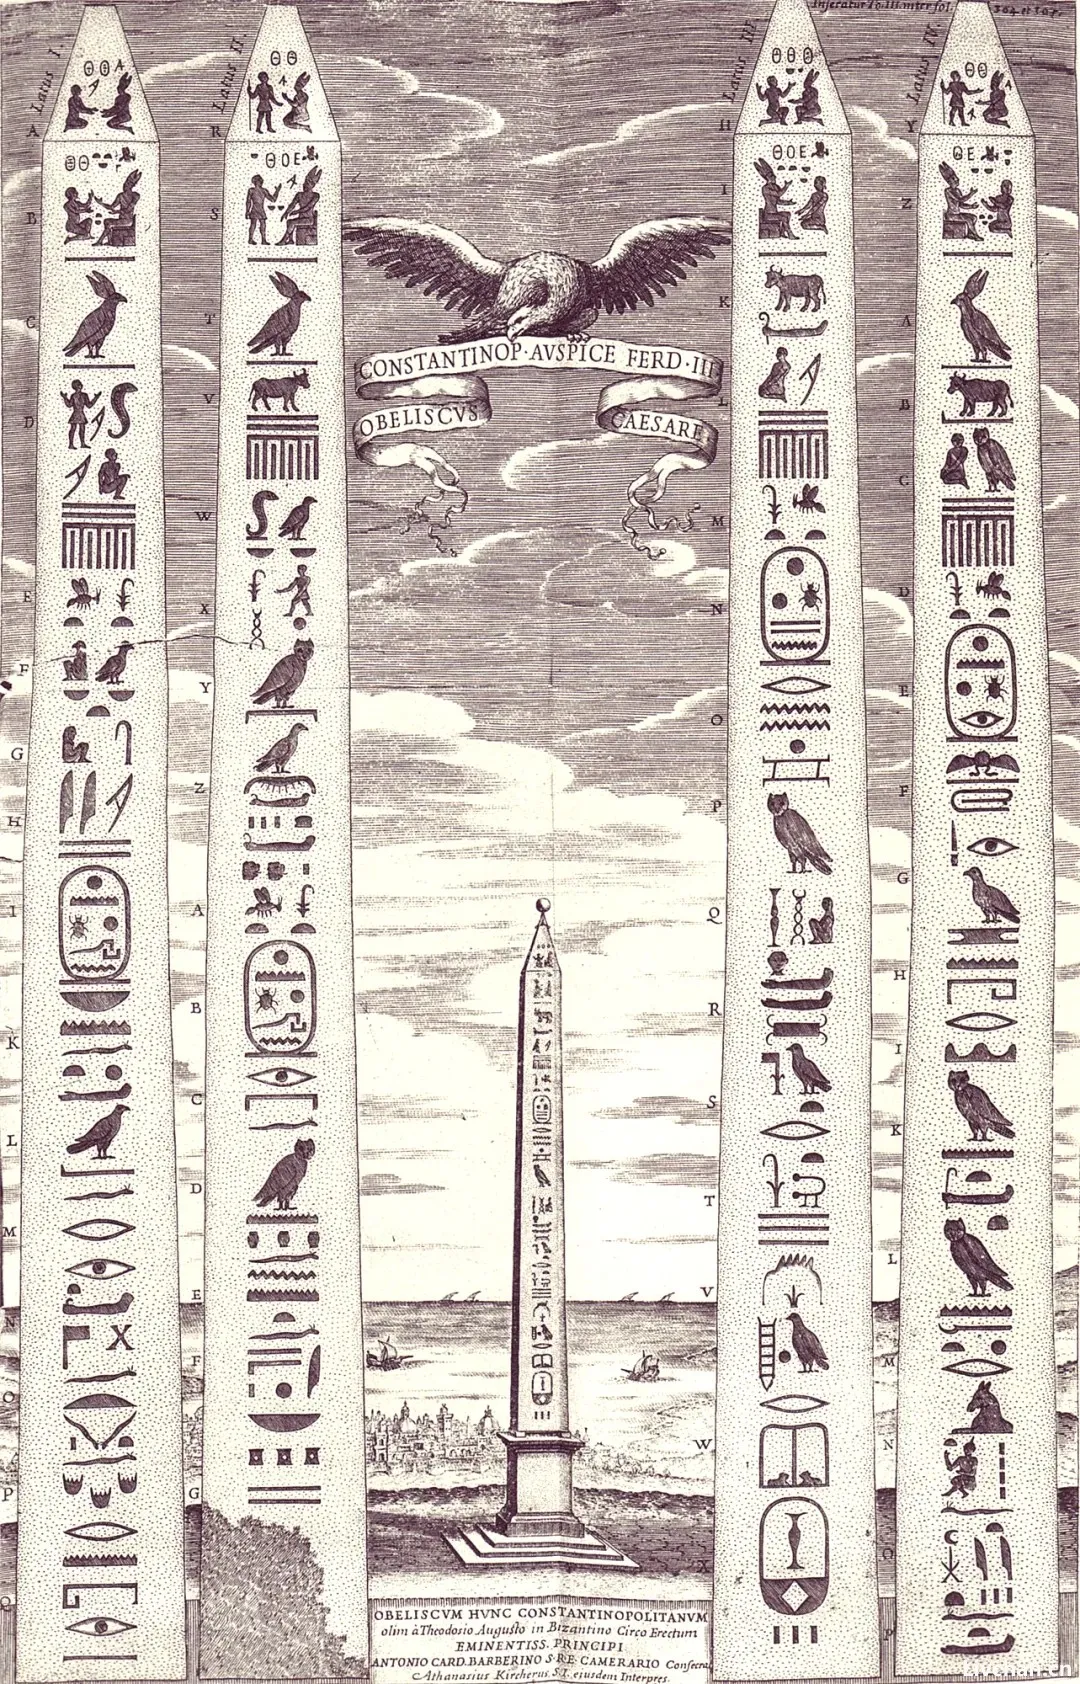 Inseratur To. III. inter fol. 304 et 307.
Latus I.
Latus II.
Latus III.
Latus IV.
CONSTANTINOP·AVSPICE FERD·III
OBELISCVS
CAESARE
A
B
C
D
E
F
G
H
I
K
L
M
N
O
P
Q
R
S
T
V
W
X
Y
Z
A
B
C
D
E
F
G
H
I
K
L
M
N
O
P
Q
R
S
T
V
W
X
Y
Z
A
B
C
D
E
F
G
H
I
K
L
M
N
O
P
OBELISCVM HVNC CONSTANTINOPOLITANVM
olim à Theodosio Augusto in Bizantino Circo Erectum
EMINENTISS. PRINCIPI
ANTONIO CARD. BARBERINO S·R·E· CAMERARIO Consecrat
Athanasius Kircherus. S.I. eiusdem Interpres.